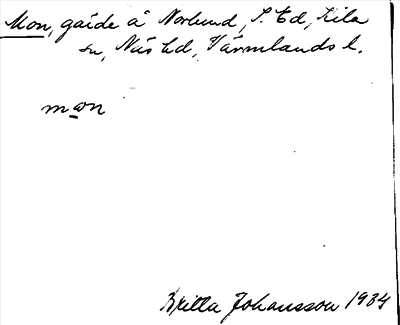 Mon, gärde å Norlund, S. Ed, Lilla
sn, Näs hd, Värmlands l.
mon
Britta Johansson 1934